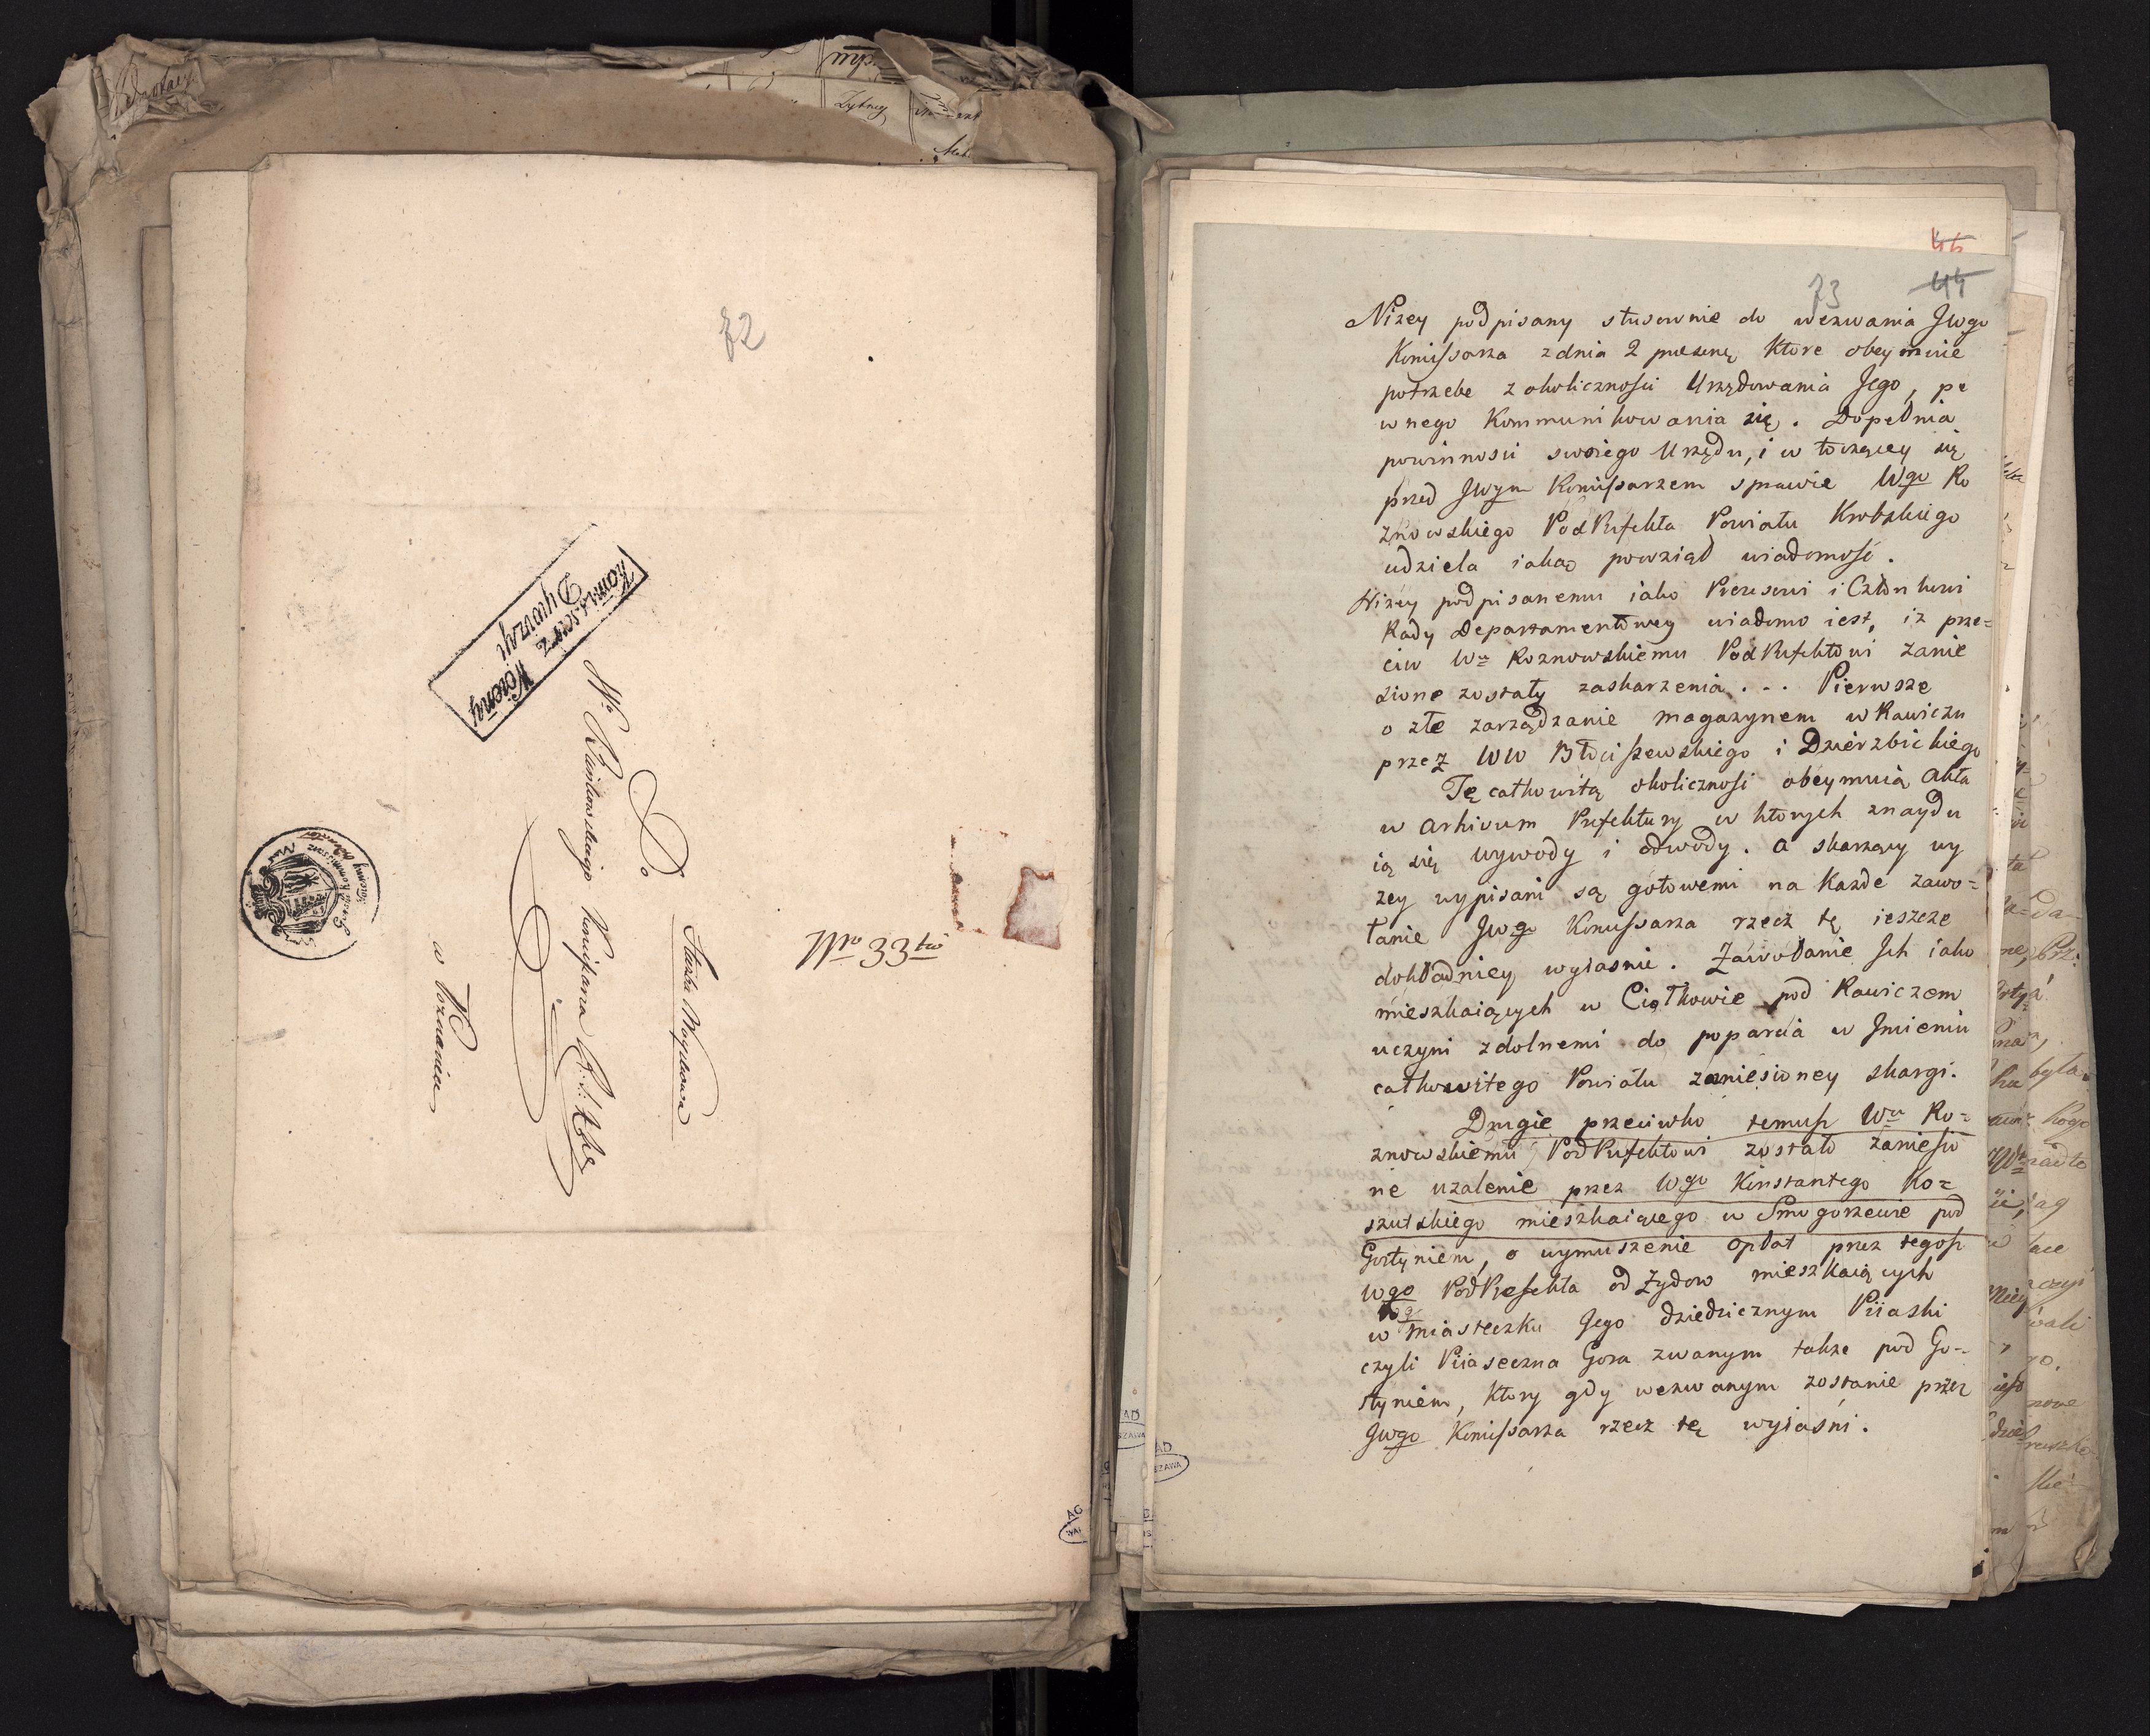 72
Woienny
Komissarz
Dywizyi
Do
W<sup>o</sup> Kwilkowskiego Komissarza
w Poznaniu
Służba Woyskowa
Nro 33tio
73
44
Niżey podpisany stusownie do wezwania Jwgo
Komissarza z dnia 2 ktore obeymuie
potrzebe z okolicznosci Urzędowania Jego, pe
wnego Kommunikowania się. Dopełnia
powinnosci swoiego Urzędu, i w toczącey się
przed Jwym Komissarzem sprawie Wgo Ro
znowskiego PodPrefekta Powiatu Krobskiego
udziela iakąo powziął wiadomość.
Niżey podpisanemu iako Prezesowi i Członkowi
Rady Departamentowey wiadomo iest, iz prze=
ciw Wu Roznowskiemu PodPrefektowi zanie
sione zostały zaskarzenia . . . Pierwsze
o złe zarządzanie magazynem w Rawiczu
przez WW Błociszewskiego i Dzierzbickiego
Tę całkowitą okolicznosć obeymuią akta
w Arhivum Prefektury w ktorych znaydu
ią się wywody i odwody. a skarzący wy
zey wypisani są gotowemi na Kazde zawo=
łanie Jwgo Komissarza rzecz tę ieszcze
dokładniey wyiasnić. Zawołanie Jch iako
mieszkaiących w Ciołkowie pod Rawiczem
uczyni zdolnemi do poparcia w Jmieniu
całkowitego Powiatu zaniesioney skargi.
Drugie przeciwko temuż Wu Ro=
znowskiemu PodPrefektowi zostało zaniesio
ne uzalenie przez Wgo Konstantego Ko=
szutskiego mieszkaiącego w Smogorzewie pod
Gostyniem, o wymuszenie opłat przez tegoż
Wgo PodPrefekta od Zydow mieszkaiących
w miasteczku Jego dziedzicznym Piiaski
czyli Piiaseczna Gora zwanym takze pod Go-
styniem, Ktory gdy wezwanym zostanie przez
Jwgo Komissarza rzecz tę wyiaśni.